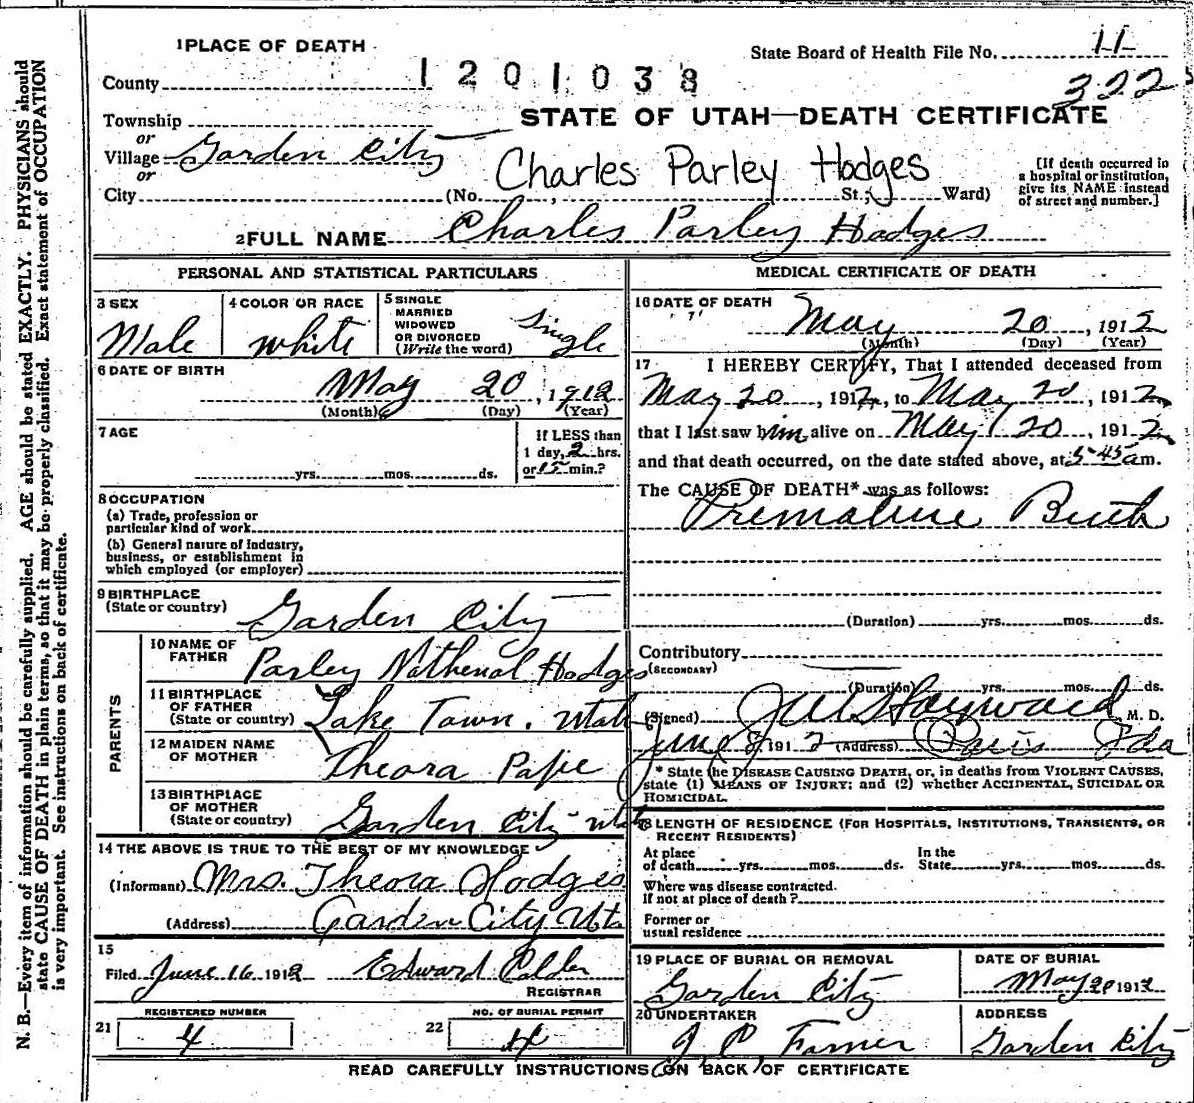 1 PLACE OF DEATH
State Board of Health File No. 11
County 1201038
322
Township
STATE OF UTAH—DEATH CERTIFICATE
or
Village Garden City
or
City (No. , St.; Ward)
Charles Parley Hodges
[If death occurred in
a hospital or institution,
give its NAME instead
of street and number.]
2 FULL NAME Charles Parley Hodges
PERSONAL AND STATISTICAL PARTICULARS
3 SEX
Male
4 COLOR OR RACE
white
5 SINGLE
MARRIED
WIDOWED
OR DIVORCED
(Write the word)
Single
6 DATE OF BIRTH
May 20, 1912
(Month) (Day) (Year)
7 AGE
yrs. mos. ds.
If LESS than
1 day, 2 hrs.
or 15 min.?
8 OCCUPATION
(a) Trade, profession or
particular kind of work
(b) General nature of industry,
business, or establishment in
which employed (or employer)
9 BIRTHPLACE
(State or country) Garden City
PARENTS
10 NAME OF
FATHER Parley Nathenal Hodges
11 BIRTHPLACE
OF FATHER
(State or country) Lake Town. Utah
12 MAIDEN NAME
OF MOTHER Theora Pape
13 BIRTHPLACE
OF MOTHER
(State or country) Garden City Utah
14 THE ABOVE IS TRUE TO THE BEST OF MY KNOWLEDGE
(Informant) Mrs. Theora Hodges
(Address) Garden City Ut.
15
Filed June 16 1912 Edward Calder
REGISTRAR
21 REGISTERED NUMBER
4
22 NO. OF BURIAL PERMIT
4
MEDICAL CERTIFICATE OF DEATH
16 DATE OF DEATH
May 20, 1912
(Month) (Day) (Year)
17 I HEREBY CERTIFY, That I attended deceased from
May 20, 1912, to May 20, 1912
that I last saw him alive on May 20, 1912
and that death occurred, on the date stated above, at 5-45 am.
The CAUSE OF DEATH* was as follows:
Premature Birth
(Duration) yrs. mos. ds.
Contributory
(SECONDARY)
(Duration) yrs. mos. ds.
(Signed) Hayward M. D.
June 8, 1912 (Address) Paris Ida
* State the DISEASE CAUSING DEATH, or, in deaths from VIOLENT CAUSES,
state (1) MEANS OF INJURY; and (2) whether ACCIDENTAL, SUICIDAL OR
HOMICIDAL.
18 LENGTH OF RESIDENCE (FOR HOSPITALS, INSTITUTIONS, TRANSIENTS, OR
RECENT RESIDENTS)
At place
of death yrs. mos. ds.
In the
State yrs. mos. ds.
Where was disease contracted.
If not at place of death?
Former or
usual residence
19 PLACE OF BURIAL OR REMOVAL
Garden City
DATE OF BURIAL
May 20 1912
20 UNDERTAKER
J. P. Farner
ADDRESS
Garden City
READ CAREFULLY INSTRUCTIONS ON BACK OF CERTIFICATE
N. B.—Every item of information should be carefully supplied. AGE should be stated EXACTLY. PHYSICIANS should
state CAUSE OF DEATH in plain terms, so that it may be properly classified. Exact statement of OCCUPATION
is very important. See instructions on back of certificate.